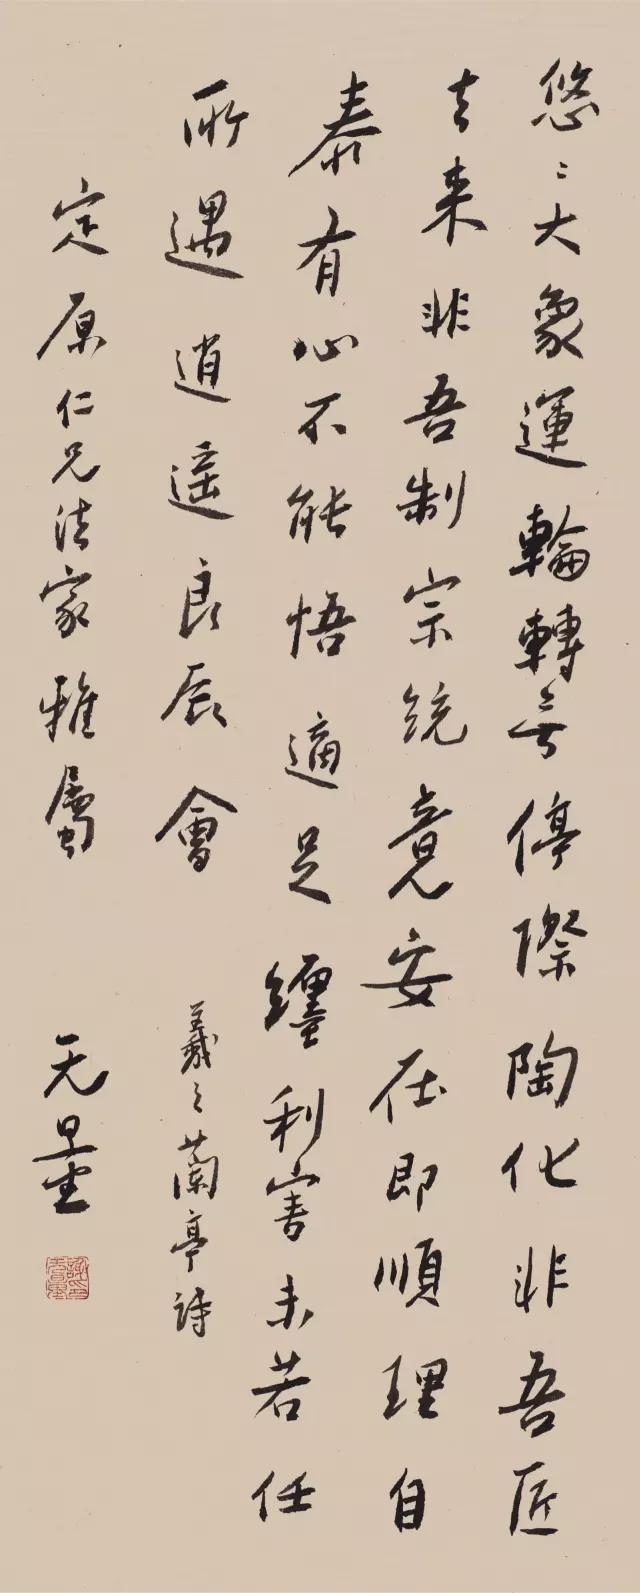 悠〻大象運輪轉無停際陶化非吾匠
去来非吾制宗統竟安在即順理自
泰有心不能悟適足纏利害未若任
所遇逍遥良辰會
羲之蘭亭詩
定原仁兄法家雅屬
无量